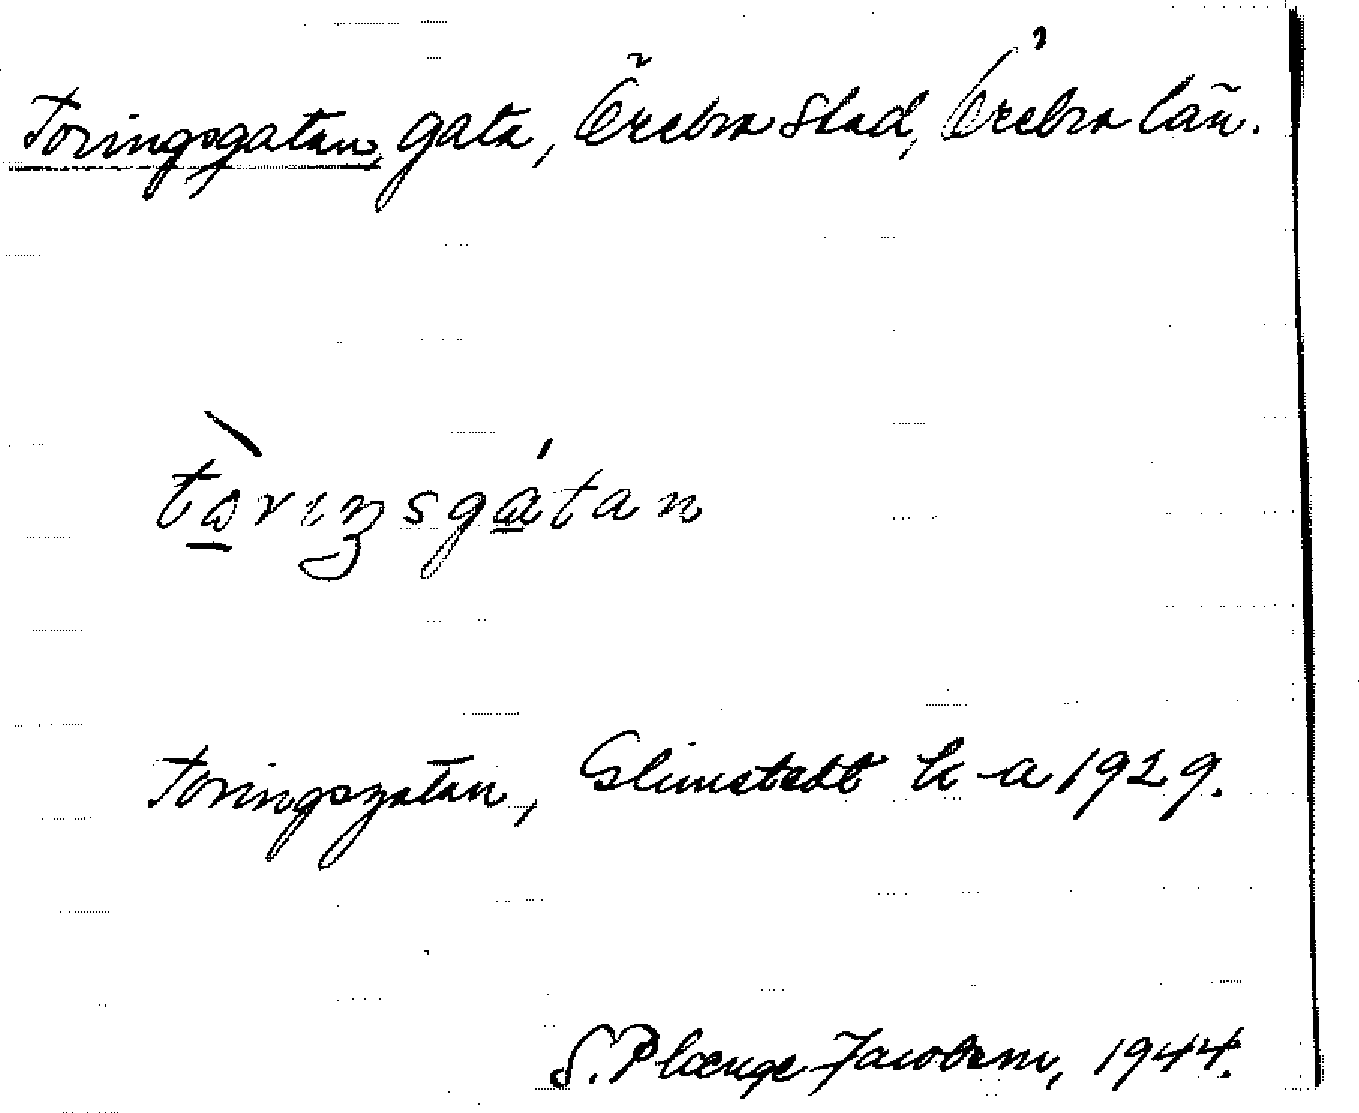 Toringsgatan, gata, Örebro stad, Örebro län.
tòrıŋsgátan
Toringsgatan, Glimstedt k-a 1929.
S. Plænge Jacobson, 1944.